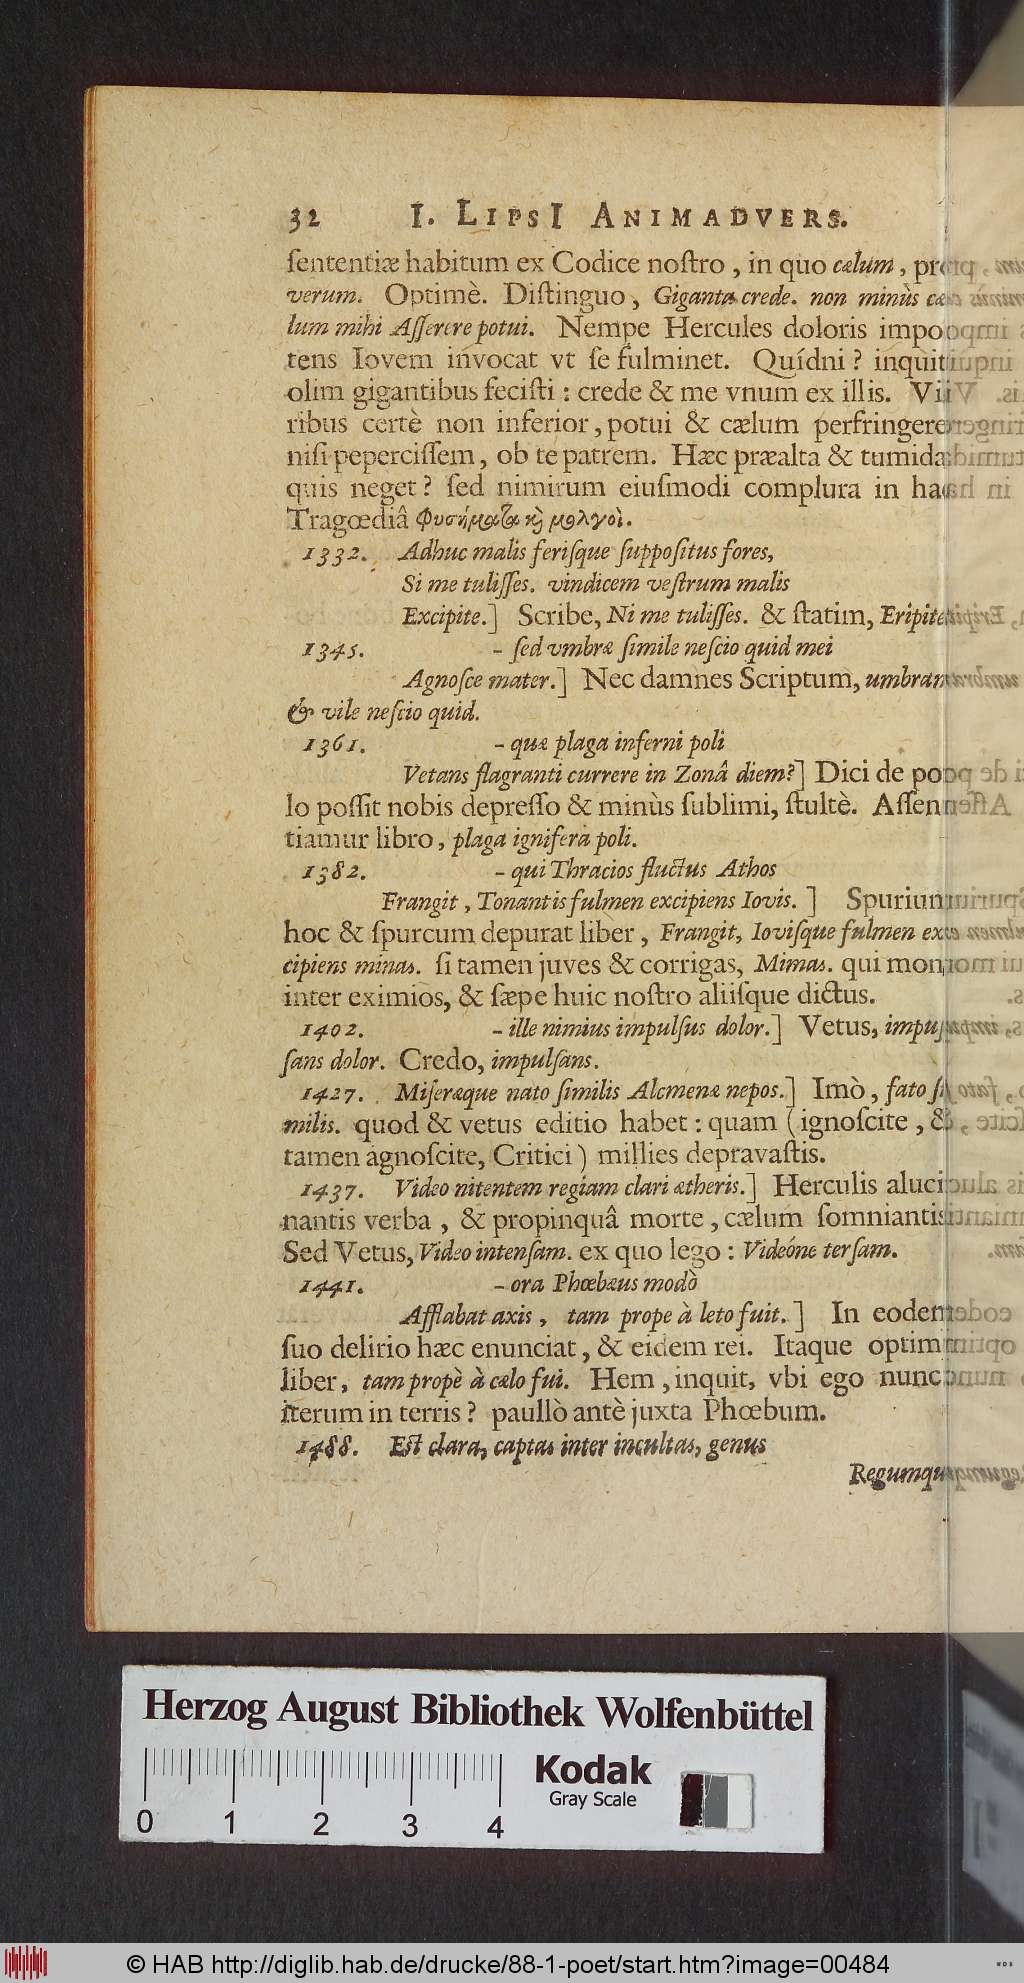 32 I. LIPSI ANIMADVERS.
ſententiæ habitum ex Codice noſtro, in quo cælum, pro
verum. Optimè. Diſtinguo, Giganta crede. non minùs cæ-
lum mihi Aſſerere potui. Nempe Hercules doloris impo-
tens Iovem invocat vt ſe fulminet. Quídni? inquit
olim gigantibus feciſti: crede & me vnum ex illis. Vi-
ribus certè non inferior, potui & cælum perfringere
niſi peperciſſem, ob te patrem. Hæc præalta & tumida
quis neget? ſed nimirum eiuſmodi complura in hac
Tragœdiâ φυσήματα καὶ μολγοὶ.
1332. Adhuc malis feriſque ſuppoſitus fores,
Si me tuliſſes. vindicem veſtrum malis
Excipite.] Scribe, Ni me tuliſſes. & ſtatim, Eripite
1345. – ſed vmbræ ſimile neſcio quid mei
Agnoſce mater.] Nec damnes Scriptum, umbram
& vile neſcio quid.
1361. – quæ plaga inferni poli
Vetans flagranti currere in Zonâ diem?] Dici de po-
lo poſſit nobis depreſſo & minùs ſublimi, ſtultè. Aſſen-
tiamur libro, plaga ignifera poli.
1382. – qui Thracios fluctus Athos
Frangit, Tonantis fulmen excipiens Iovis.] Spurium
hoc & ſpurcum depurat liber, Frangit, Ioviſque fulmen ex-
cipiens minas. ſi tamen juves & corrigas, Mimas. qui mons
inter eximios, & ſæpe huic noſtro aliiſque dictus.
1402. – ille nimius impulſus dolor.] Vetus, impu-
ſans dolor. Credo, impulſans.
1427. Miſeræque nato ſimilis Alcmenæ nepos.] Imò, fato ſi-
milis. quod & vetus editio habet: quam (ignoſcite, &
tamen agnoſcite, Critici) millies depravaſtis.
1437. Video nitentem regiam clari ætheris.] Herculis aluci-
nantis verba, & propinquâ morte, cælum ſomniantis
Sed Vetus, Video intenſam. ex quo lego: Videóne terſam.
1441. – ora Phœbæus modò
Afflabat axis, tam prope à leto fuit.] In eodem
ſuo delirio hæc enunciat, & eidem rei. Itaque optim
liber, tam propè à cælo fui. Hem, inquit, vbi ego nunc
iterum in terris? paullò antè juxta Phœbum.
1488. Eſt clara, captas inter incultas, genus
Regumque
Herzog August Bibliothek Wolfenbüttel
Kodak
Gray Scale
0 1 2 3 4
© HAB http://diglib.hab.de/drucke/88-1-poet/start.htm?image=00484